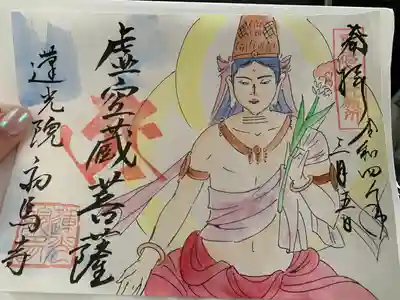 奉拝
令和四年
三月五日
虚空蔵菩薩
蓮光院
初馬寺